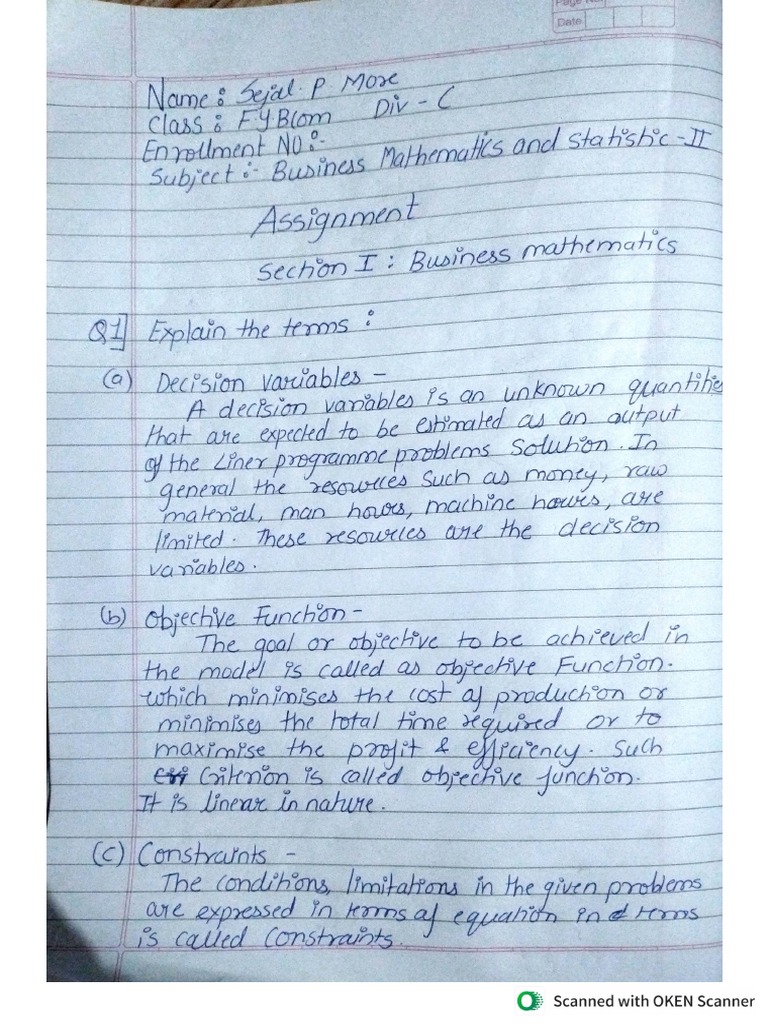 Page No.
Date
Name : Sejal P More
Class : F.Y.Bcom Div - C
Enrollment NO :-
Subject :- Business Mathematics and Statistic -II
Assignment
Section I : Business mathematics
Q1] Explain the terms :
(a) Decision variables -
A decision variables is an unknown quantities
that are expected to be estimated as an output
of the Liner programme problems Solution. In
general the resources Such as money, raw
material, man hours, machine hours, are
limited. These resources are the decision
variables.
(b) Objective Function -
The goal or objective to be achieved in
the model is called as objective Function.
which minimises the cost of production or
minimises the total time required or to
maximise the profit & efficiency. Such
Criterion is called objective function.
It is linear in nature.
(c) Constraints -
The conditions, limitations in the given problems
are expressed in terms of equation in terms
is called Constraints.
Scanned with OKEN Scanner